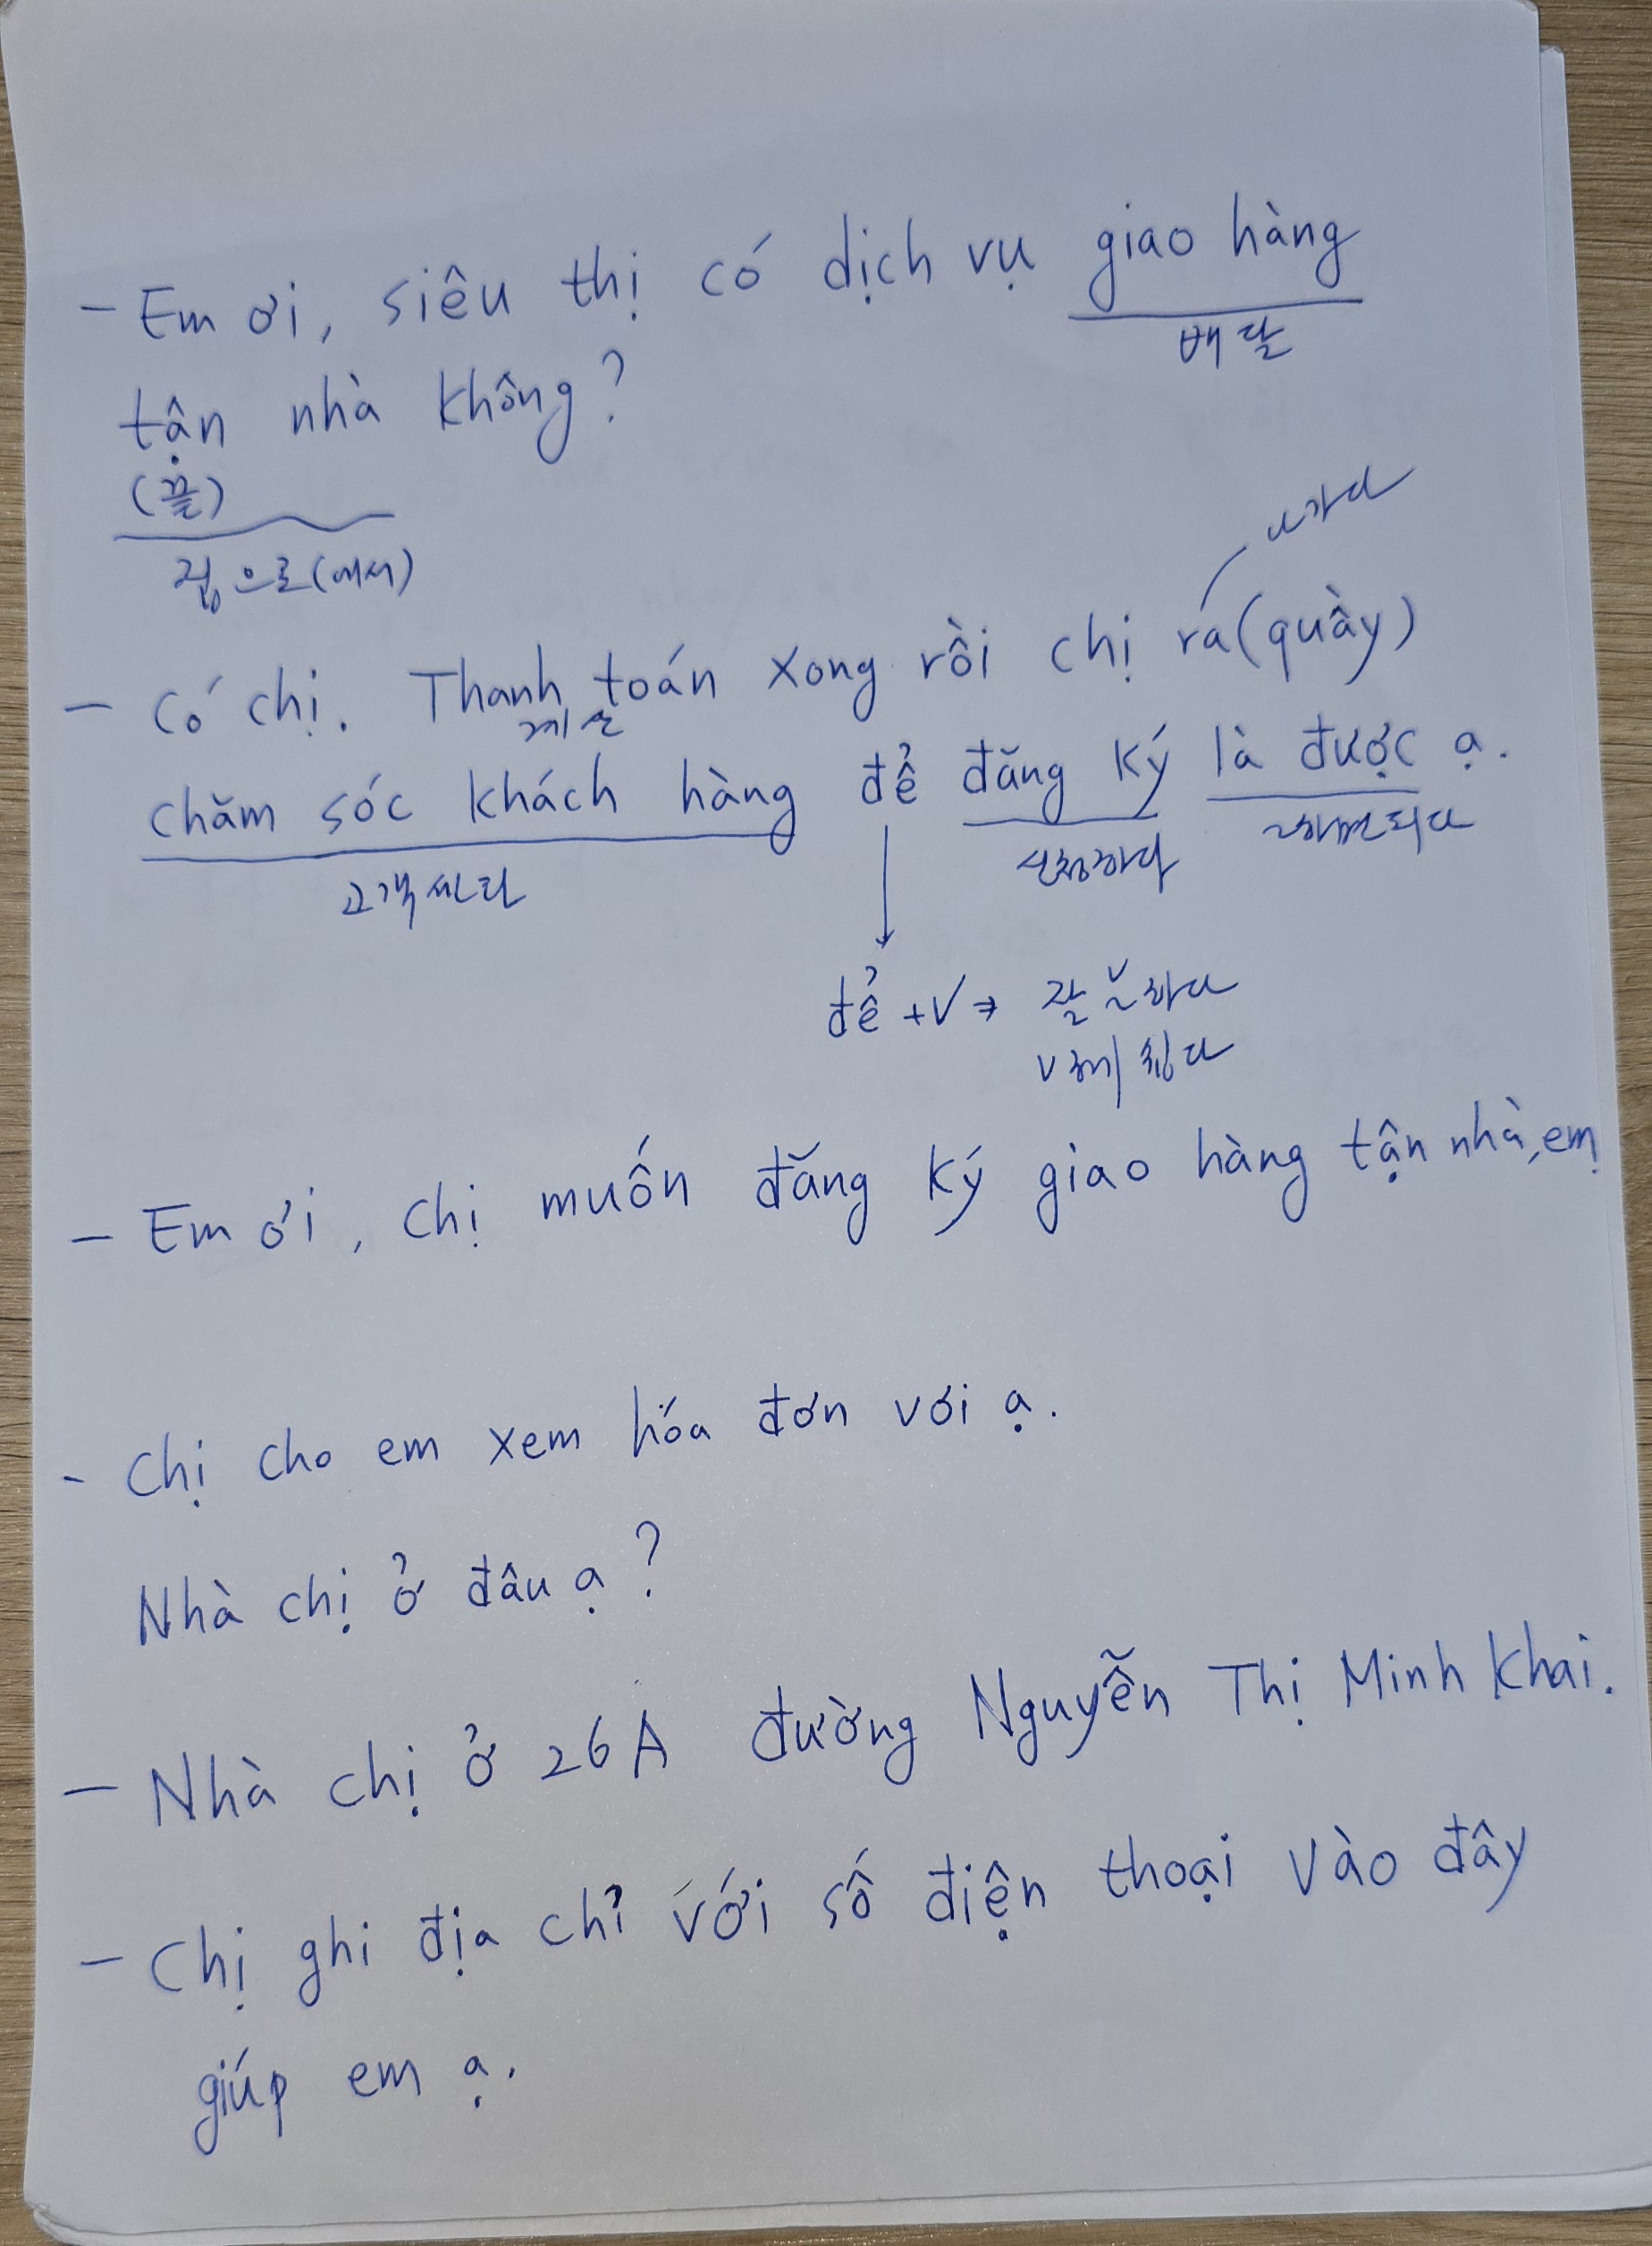 - Em ơi, siêu thị có dịch vụ giao hàng
배달
tận nhà không?
(끝)
집으로(에서)
나가다
- Có chị. Thanh toán xong rồi chị ra (quầy)
계산
chăm sóc khách hàng để đăng ký là được ạ.
고객센터
신청하다
그러면 되다
để + V ⇒ 잘 V 하다
V 해 놓다
- Em ơi, chị muốn đăng ký giao hàng tận nhà, em
- Chị cho em xem hóa đơn với ạ.
Nhà chị ở đâu ạ?
- Nhà chị ở 26A đường Nguyễn Thị Minh Khai.
- Chị ghi địa chỉ với số điện thoại vào đây
giúp em ạ.